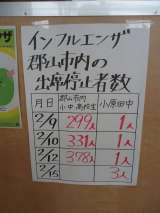 インフルエンザ
郡山市内の
出席停止者数
月日 郡山市内 小中高校生 小原田中
2/9 299人 1人
2/10 331人 1人
2/12 378人 1人
2/15 3人
ンザ